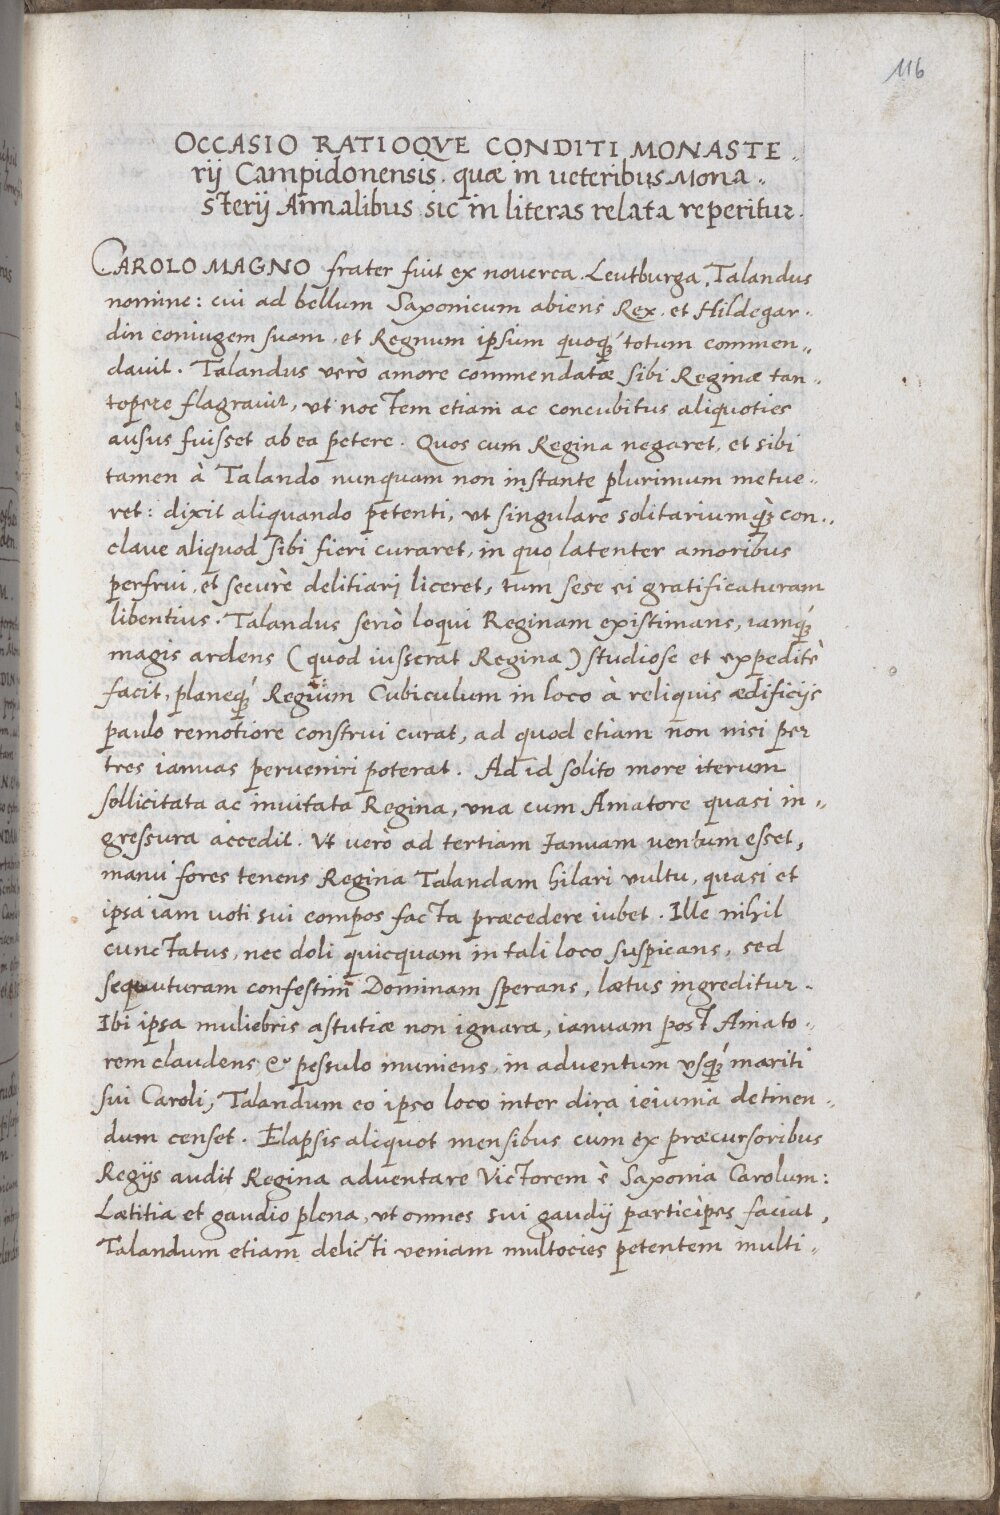 116
OCCASIO RATIOQVE CONDITI MONASTE„
rij Campidonensis. quæ in ueteribus Mona„
sterij Annalibus sic in literas relata reperitur.
CAROLO MAGNO frater fuit ex nouerca Leutburga, Talandus
nomine: cui ad bellum Saxonicum abiens Rex. et Hildegar„
din coniugem suam, et Regnum ipsum quoq́ꝫ totum commen„
dauit. Talandus verò amore commendatæ sibi Reginæ tan„
topere flagrauit, vt noctem etiam ac concubitus aliquoties
ausus fuisset ab ea petere. Quos cum Regina negaret, et sibi
tamen à Talando nunquam non instante plurimum metue„
ret: dixit aliquando petenti, ut singulare solitariumq̀ꝫ con„
claue aliquod sibi fieri curaret, in quo latenter amoribus
perfrui, et securè delitiarj liceret, tum sese ei gratificaturam
libentius. Talandus seriò loqui Reginam existimans, iamq́ꝫ
magis ardens (quod iusserat Regina) studiose et expeditè
facit, planeq́ꝫ Regium Cubiculum in loco à reliquis ædificijs
paulo remotiore construi curat, ad quod etiam non nisi per
tres ianuas perueniri poterat. Ad id solito more iterum
sollicitata ac inuitata Regina, vna cum Amatore quasi in„
gressura accedit. Vt verò ad tertiam Ianuam uentum esset,
manu fores tenens Regina Talandam hilari vultu, quasi et
ipsa iam uoti sui compos facta præcedere iubet. Ille nihil
cunctatus, nec doli quicquam in tali loco suspicans, sed
sequuturam confestim Dominam sperans, lætus ingreditur.
Ibi ipsa muliebris astutiæ non ignara, ianuam post Amato„
rem claudens & pessulo muniens, in aduentum vsq́ꝫ mariti
sui Caroli, Talandum eo ipso loco inter dira ieiunia detinen„
dum censet. Elapsis aliquot mensibus cum ex præcursoribus
Regijs audit Regina aduentare Victorem è Saxonia Carolum:
Lætitia et gaudio plena, vt omnes sui gaudij participes faciat,
Talandum etiam delicti ueniam multocies petentem multi„